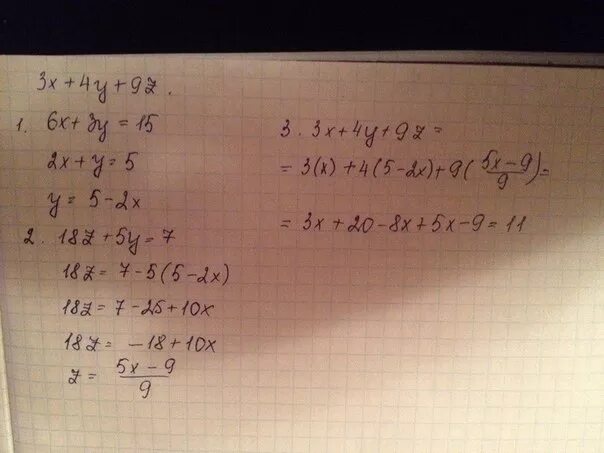 3x + 4y + 9z.
1. 6x + 3y = 15
2x + y = 5
y = 5 - 2x
2. 18z + 5y = 7
18z = 7 - 5(5 - 2x)
18z = 7 - 25 + 10x
18z = -18 + 10x
z = \frac{5x - 9}{9}
3. 3x + 4y + 9z =
= 3(x) + 4(5 - 2x) + 9(\frac{5x - 9}{9}) =
= 3x + 20 - 8x + 5x - 9 = 11